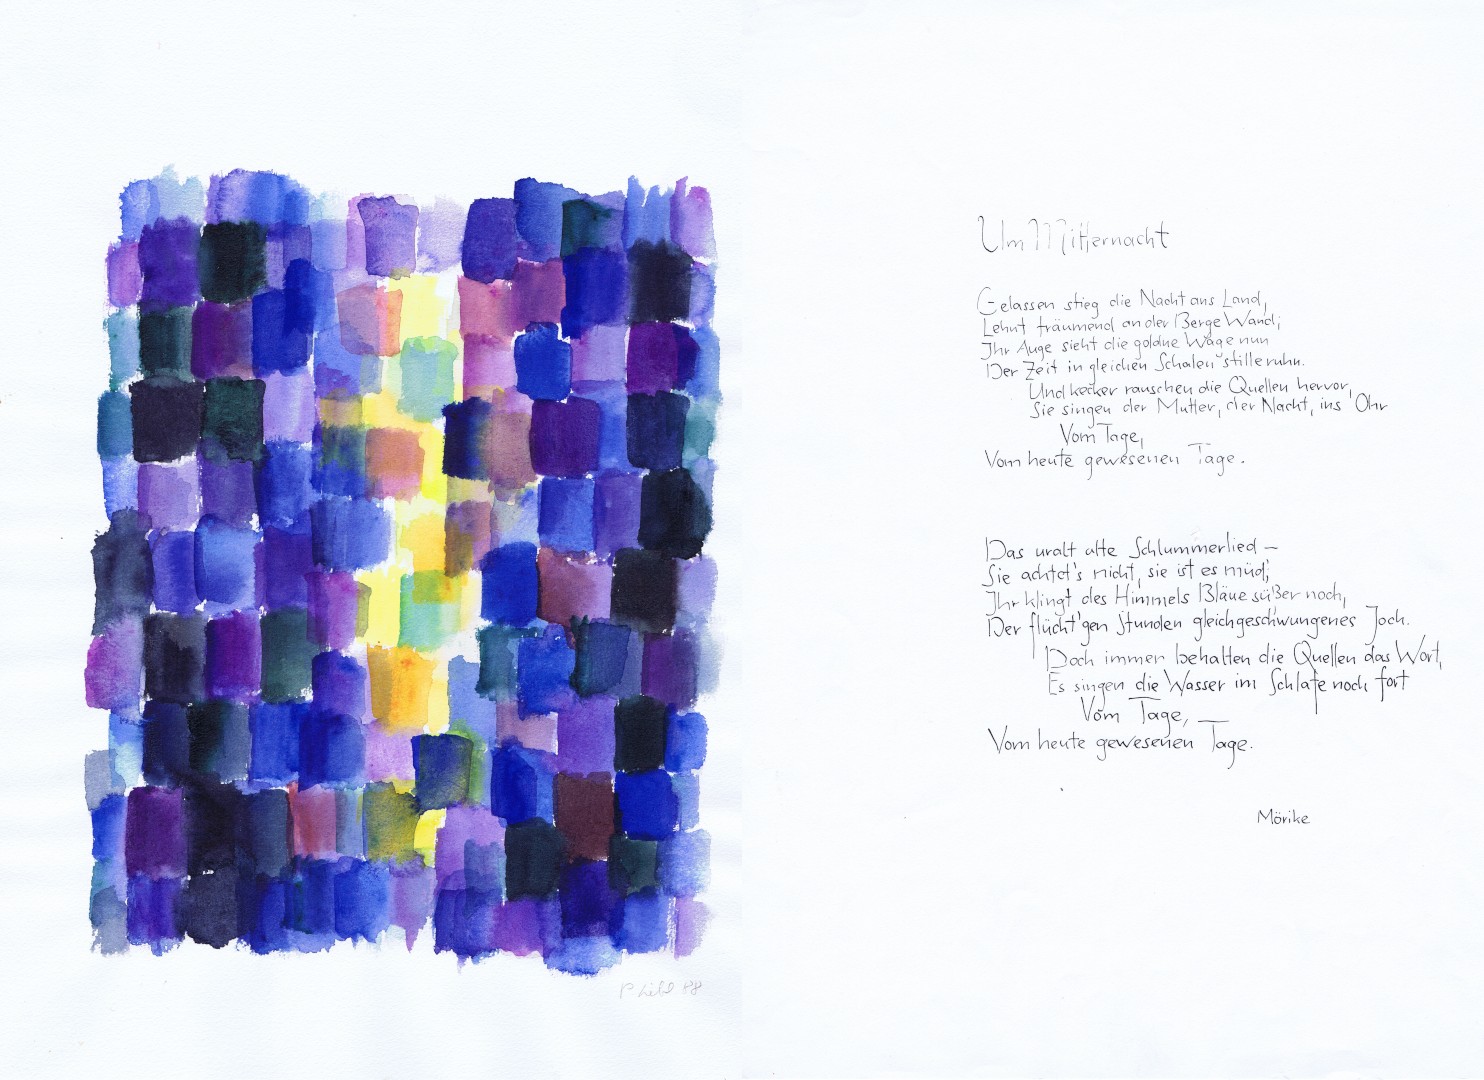 Um Mitternacht
Gelassen stieg die Nacht ans Land,
Lehnt träumend an der Berge Wand;
Ihr Auge sieht die goldne Wage nun
Der Zeit in gleichen Schalen stille ruhn.
Und kecker rauschen die Quellen hervor,
Sie singen der Mutter, der Nacht, ins Ohr
Vom Tage,
Vom heute gewesenen Tage.
Das uralt alte Schlummerlied –
Sie achtet's nicht, sie ist es müd;
Ihr klingt des Himmels Bläue süßer noch,
Der flücht'gen Stunden gleichgeschwungenes Joch.
Doch immer behalten die Quellen das Wort,
Es singen die Wasser im Schlafe noch fort
Vom Tage,
Vom heute gewesenen Tage.
Mörike
88